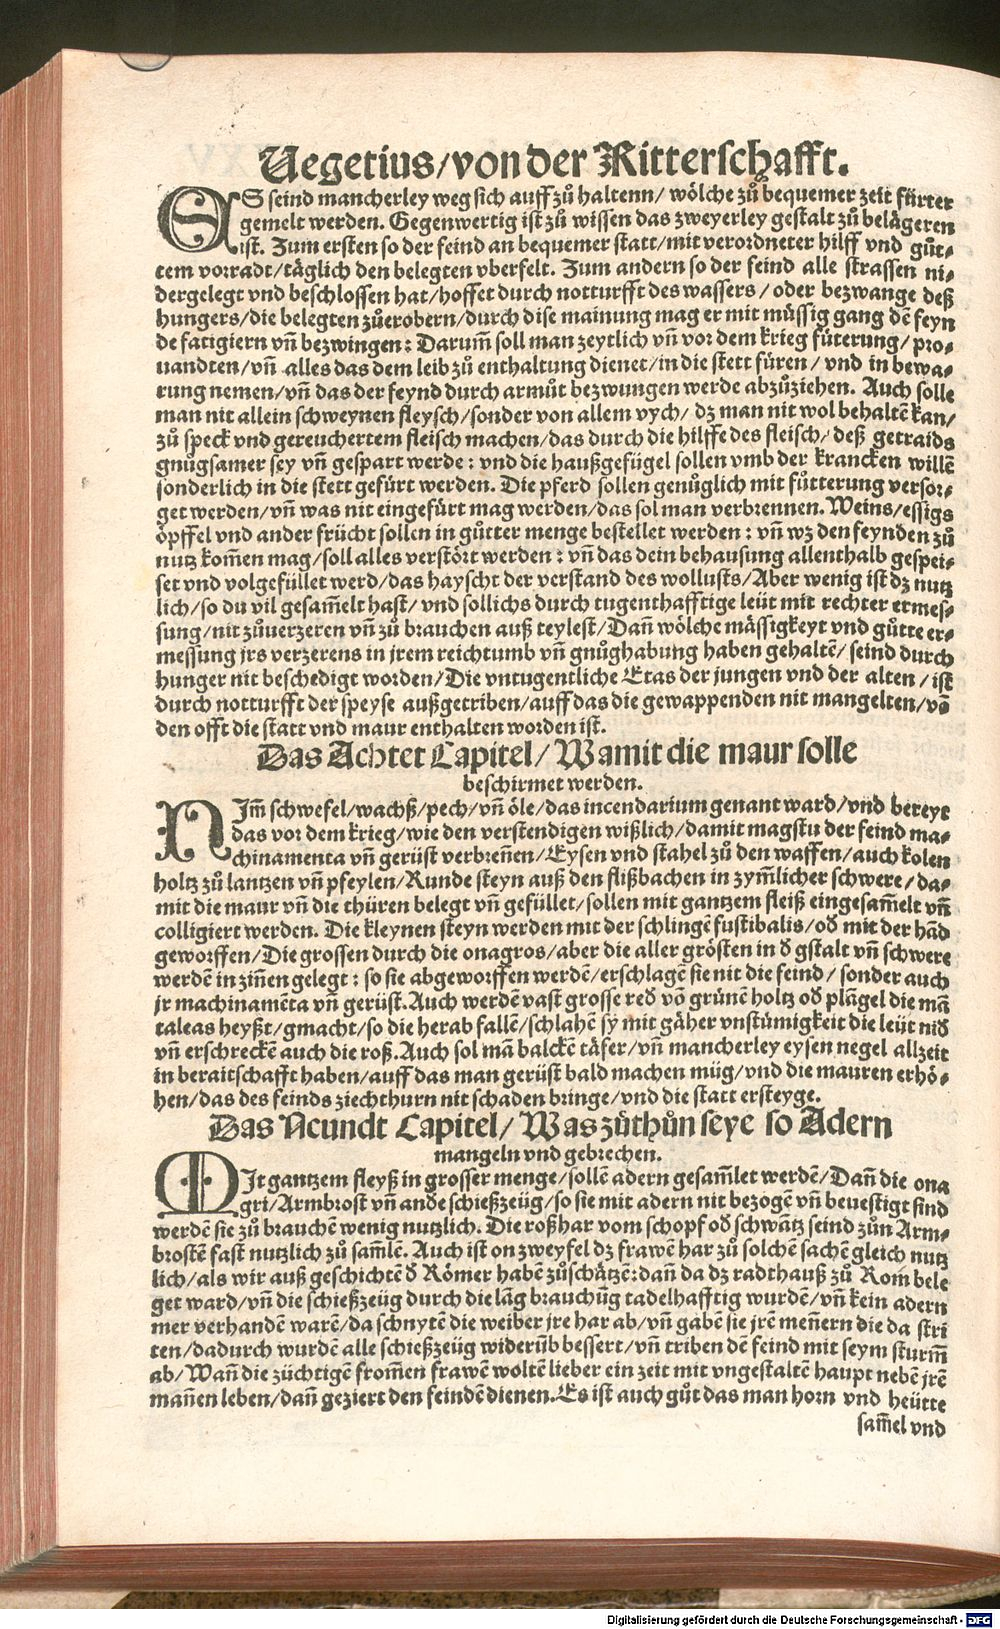 Uegetius/von der Ritterschafft.
ES seind mancherley weg sich auff zů haltenn/ wölche zů bequemer zeit fürter
gemelt werden. Gegenwertig ist zů wissen das zweyerley gestalt zů belägeren
ist. Zum ersten so der feind an bequemer statt/mit verordneter hilff vnd gůt-
tem vorradt/täglich den belegten vberfelt. Zum andern so der feind alle strassen ni-
dergelegt vnd beschlossen hat/hoffet durch notturfft des wassers/ oder bezwange deß
hungers/die belegten zůerobern/durch dise mainung mag er mit müssig gang dē feyn
de fatigiern vñ bezwingen: Darum̃ soll man zeytlich vñ vor dem krieg fůterung/ pro-
uandten/vñ alles das dem leib zů enthaltung dienet/in die stett füren/ vnd in bewa-
rung nemen/vñ das der feynd durch armůt bezwungen werde abzůziehen. Auch solle
man nit allein schweynen fleysch/sonder von allem vych/ dz man nit wol behaltē kan/
zů speck vnd gereuchertem fleisch machen/das durch die hilffe des fleisch/ deß getraids
gnůgsamer sey vñ gespart werde: vnd die haußgefügel sollen vmb der krancken willē
sonderlich in die stett gefürt werden. Die pferd sollen genůglich mit fůtterung versor-
get werden/vñ was nit eingefürt mag werden/das sol man verbrennen. Weins/essigs
öpffel vnd ander frücht sollen in gůtter menge bestellet werden: vñ wz den feynden zů
nutz kom̃en mag/soll alles verstört werden: vñ das dein behausung allenthalb gespei-
set vnd volgefüllet werd/das hayscht der verstand des wollusts/Aber wenig ist dz nutz
lich/so du vil gesam̃elt hast/ vnd sollichs durch tugenthafftige leüt mit rechter ermes-
sung/nit zůuerzeren vñ zů brauchen auß teylest/Dañ wölche mässigkeyt vnd gůtte er-
messung jrs verzerens in jrem reichtumb vñ gnůghabung haben gehaltē/ seind durch
hunger nit beschedigt worden/Die vntugentliche Etas der jungen vnd der alten/ist
durch notturfft der speyse außgetriben/auff das die gewappenden nit mangelten/vō
den offt die statt vnd maur enthalten worden ist.
Das Achtet Capitel/ Wamit die maur solle
beschirmet werden.
NIm̃ schwefel/wachß/pech/vñ öle/das incendarium genant ward/vnd bereyt
das vor dem krieg/wie den verstendigen wißlich/damit magstu der feind ma-
chinamenta vñ gerüst verbreñen/Eysen vnd stahel zů den waffen/auch kolen
holtz zů lantzen vñ pfeylen/Runde steyn auß den flißbachen in zym̃licher schwere/da-
mit die maur vñ die thüren belegt vñ gefüllet/sollen mit gantzem fleiß eingesam̃elt vñ
colligiert werden. Die kleynen steyn werden mit der schlingē fustibalis/od̄ mit der hād
geworffen/Die grossen durch die onagros/aber die aller grösten in d̄ gstalt vñ schwere
werdē in ziñen gelegt: so sie abgeworffen werdē/erschlagē sie nit die feind/ sonder auch
jr machinamēta vñ gerüst. Auch werdē vast grosse red̄ vō grünē holtz od̄ plāgel die mā
taleas heyßt/gmacht/so die herab fallē/schlahē sy mit gäher vnstümigkeit die leüt nid̄
vñ erschreckē auch die roß. Auch sol mā balckē täfer/vñ mancherley eysen negel allzeit
in beraitschafft haben/auff das man gerüst bald machen müg/vnd die mauren erhö-
hen/das des feinds ziechthurn nit schaden bringe/vnd die statt ersteyge.
Das Neundt Capitel/ Was zůthůn seye so Adern
mangeln vnd gebrechen.
MIt gantzem fleyß in grosser menge/sollē adern gesam̃let werdē/Dañ die ona
gri/Armbrost vñ andeschießzeüg/so sie mit adern nit bezogē vñ beuestigt sind
werdē sie zů brauchē wenig nutzlich. Die roßhar vom schopf od̄ schwātz seind zůn Arm-
brostē fast nutzlich zů sam̃lē. Auch ist on zweyfel dz frawē har zů solchē sachē gleich nutz
lich/als wir auß geschichtē d̄ Römer habē zůschätzē:dañ da dz radthauß zů Rom bele
get ward/vñ die schießzeüg durch die lāg brauchūg tadelhafftig wurdē/vñ kein adern
mer verhandē warē/da schnytē die weiber jre har ab/vñ gabē sie jrē meñern die da stri
ten/dadurch wurdē alle schießzeüg widerūb bessert/vñ triben dē feind mit seym sturm̃
ab/Wañ die züchtigē from̃en frawē woltē lieber ein zeit mit vngestaltē haupt nebē jrē
mañen leben/dañ geziert den feindē dienen. Es ist auch gůt das man horn vnd heütte
sam̃el vnd
Digitalisierung gefördert durch die Deutsche Forschungsgemeinschaft - DFG